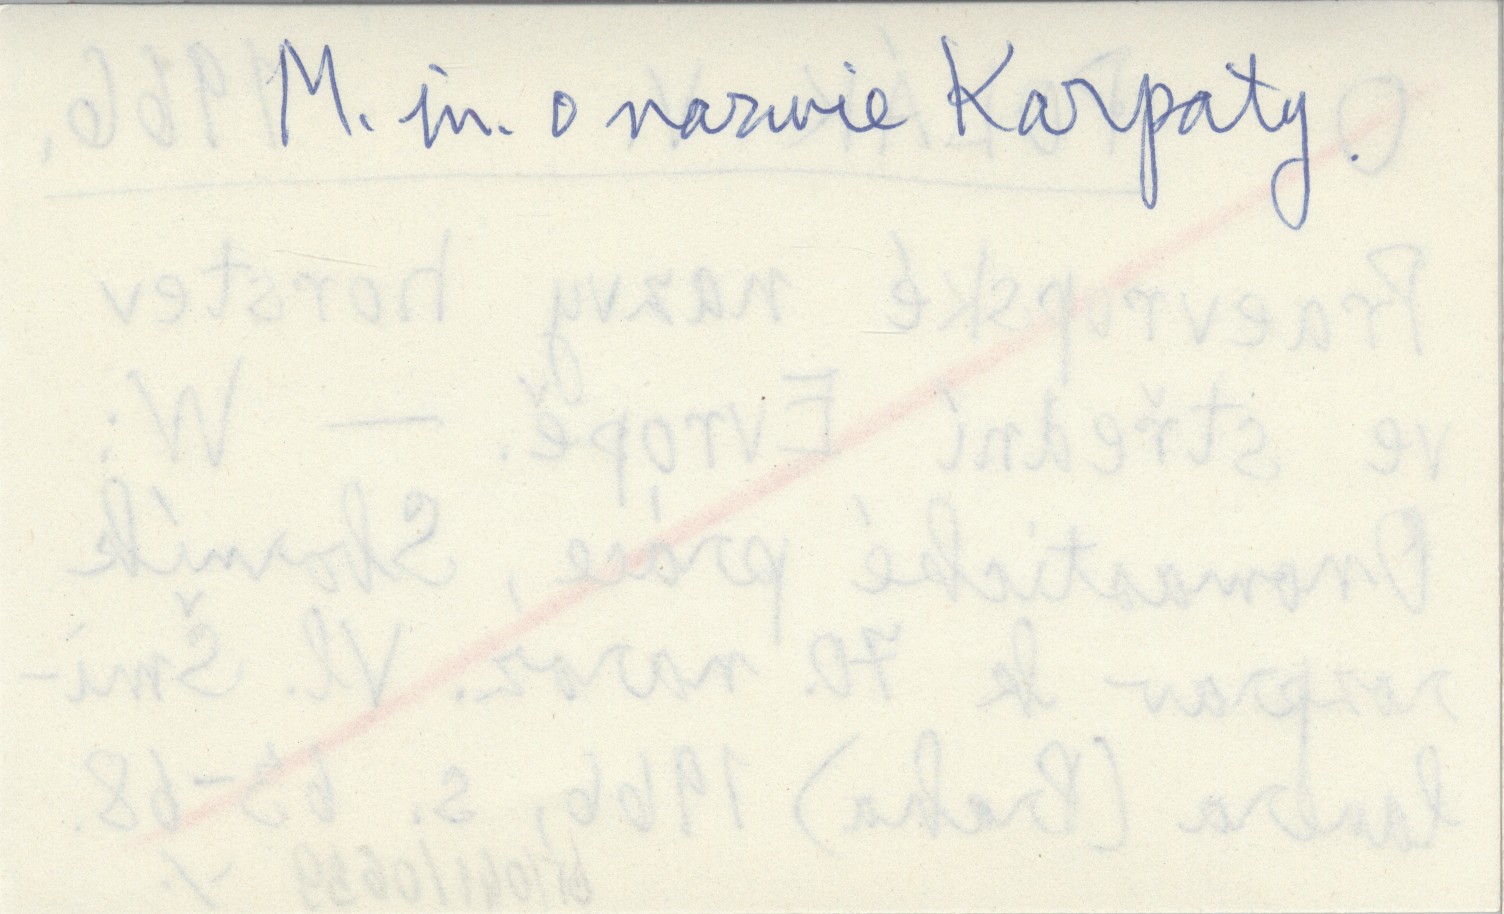 M. in. o nazwie Karpaty.